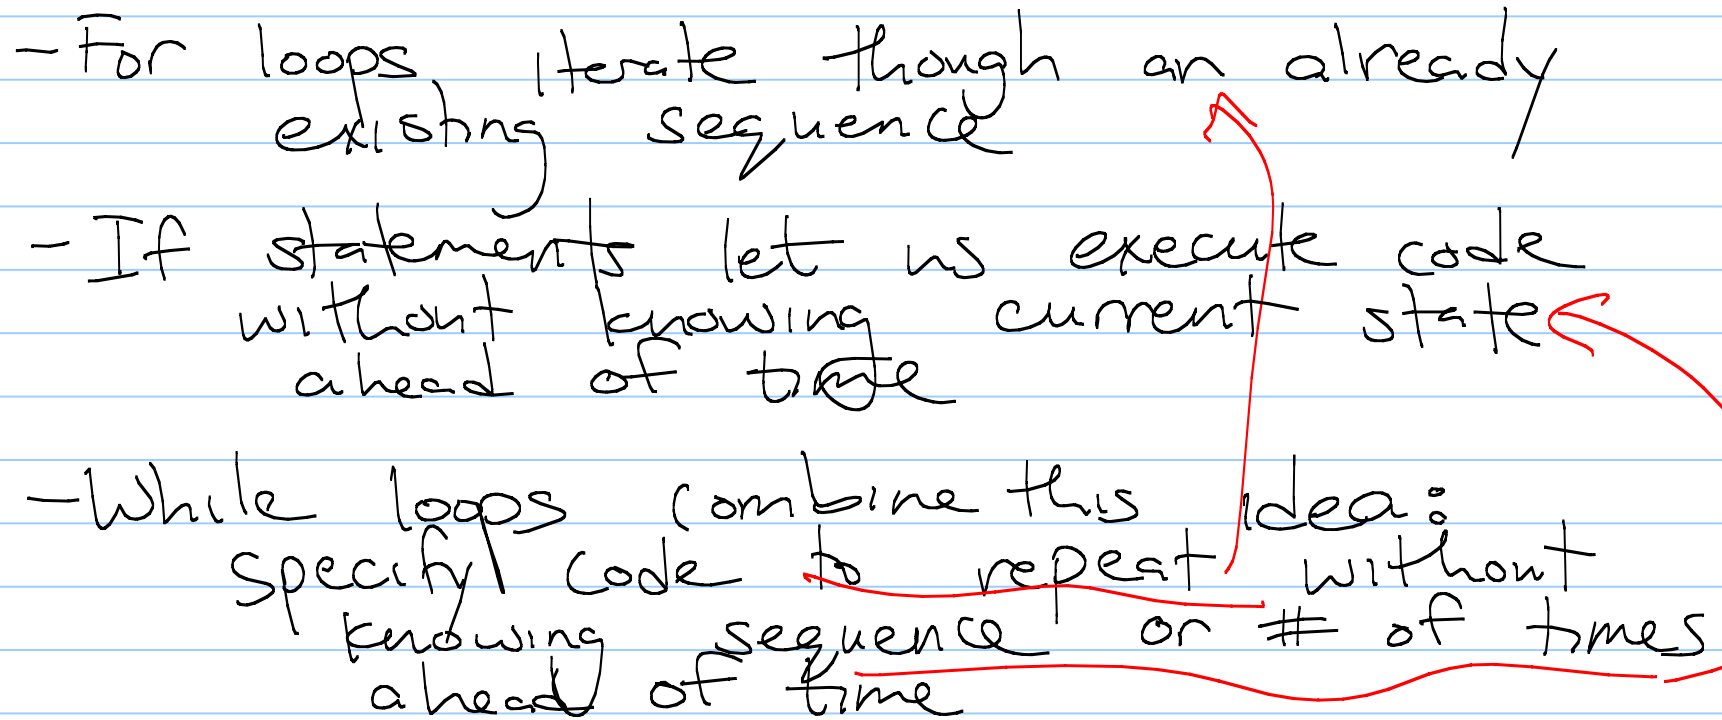 - For loops iterate though an already
existing sequence
- If statements let us execute code
without knowing current state
ahead of time
- While loops combine this idea:
specify code to repeat without
knowing sequence or # of times
ahead of time